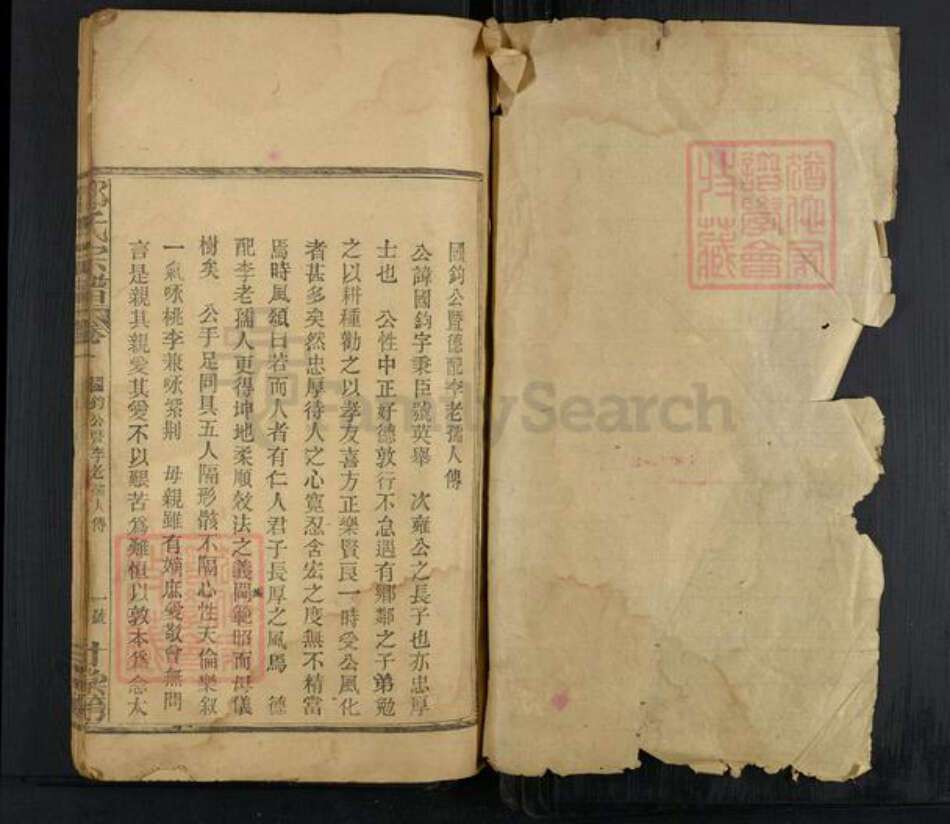 國鈞公暨德配李老孺人傳
公諱國鈞字秉臣號英舉　次雍公之長子也亦忠厚
士也　公性中正好德敦行不怠遇有鄉鄰之子弟勉
之以耕種勸之以孝友喜方正樂賢良一時受公風化
者甚多矣然忠厚待人之心寬忍含宏之度無不精當
焉時風頌曰若而人者有仁人君子長厚之風焉　德
配李老孺人更得坤地柔順效法之義閫範昭而母儀
樹矣　公手足同具五人隔形骸不隔心性天倫樂叙
一氣咏桃李兼咏紫荆　毋親雖有嫡庶愛敬曾無間
言是親其親愛其愛不以艱苦爲難恒以敦本爲念太
氏宗譜 卷一
國鈞公暨李老孺人傳
一號
FamilySearch